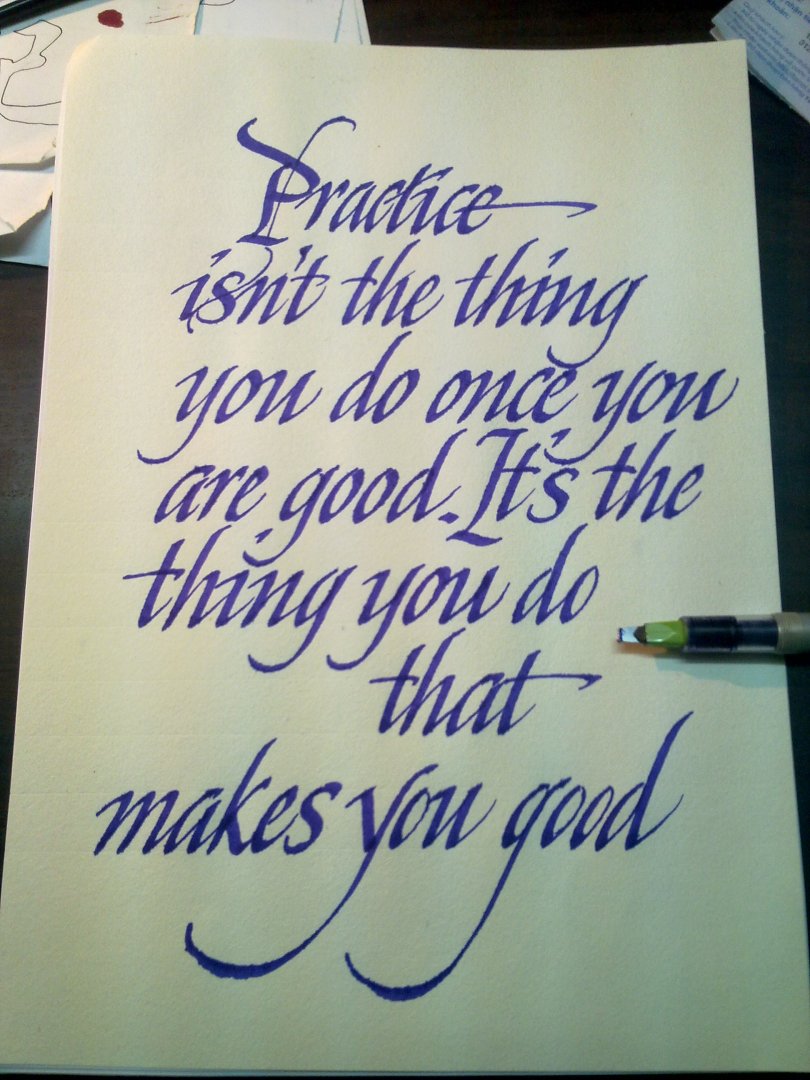 Practice
isn't the thing
you do once you
are good. It's the
thing you do
that
makes you good